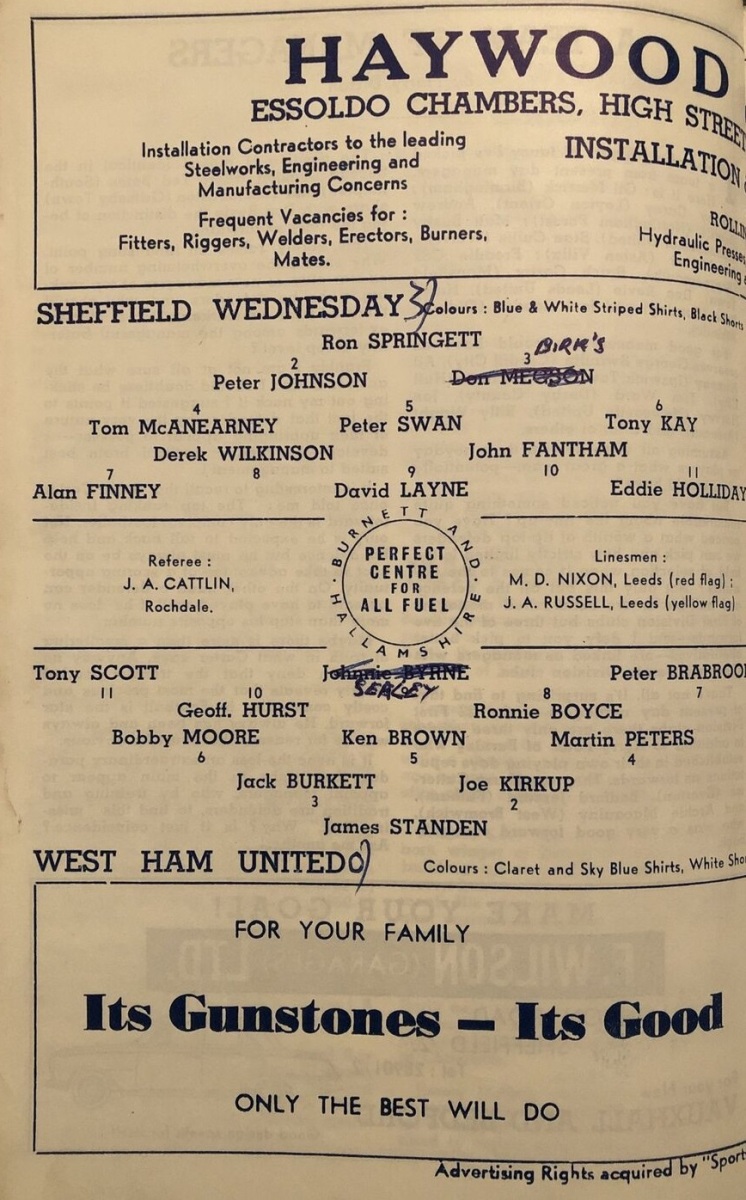 HAYWOOD
ESSOLDO CHAMBERS, HIGH STREET
Installation Contractors to the leading
Steelworks, Engineering and
Manufacturing Concerns
Frequent Vacancies for :
Fitters, Riggers, Welders, Erectors, Burners,
Mates.
INSTALLATION
Hydraulic Presses
Engineering
SHEFFIELD WEDNESDAY 3 Colours : Blue & White Striped Shirts, Black Shorts
Ron SPRINGETT
BIRK'S
2 3
Peter JOHNSON Don MEGSON
4 5 6
Tom McANEARNEY Peter SWAN Tony KAY
Derek WILKINSON John FANTHAM
7 8 9 10 11
Alan FINNEY David LAYNE Eddie HOLLIDAY
Referee :
J. A. CATTLIN,
Rochdale.
BURNETT AND HALLAMSHIRE
PERFECT
CENTRE
FOR
ALL FUEL
Linesmen :
M. D. NIXON, Leeds (red flag) :
J. A. RUSSELL, Leeds (yellow flag)
Tony SCOTT Johnnie BYRNE Peter BRABROOK
SEALEY
11 10 8 7
Geoff. HURST Ronnie BOYCE
Bobby MOORE Ken BROWN Martin PETERS
6 5 4
Jack BURKETT Joe KIRKUP
3 2
James STANDEN
WEST HAM UNITED 0 Colours : Claret and Sky Blue Shirts, White Sho
FOR YOUR FAMILY
Its Gunstones — Its Good
ONLY THE BEST WILL DO
Advertising Rights acquired by "Sport